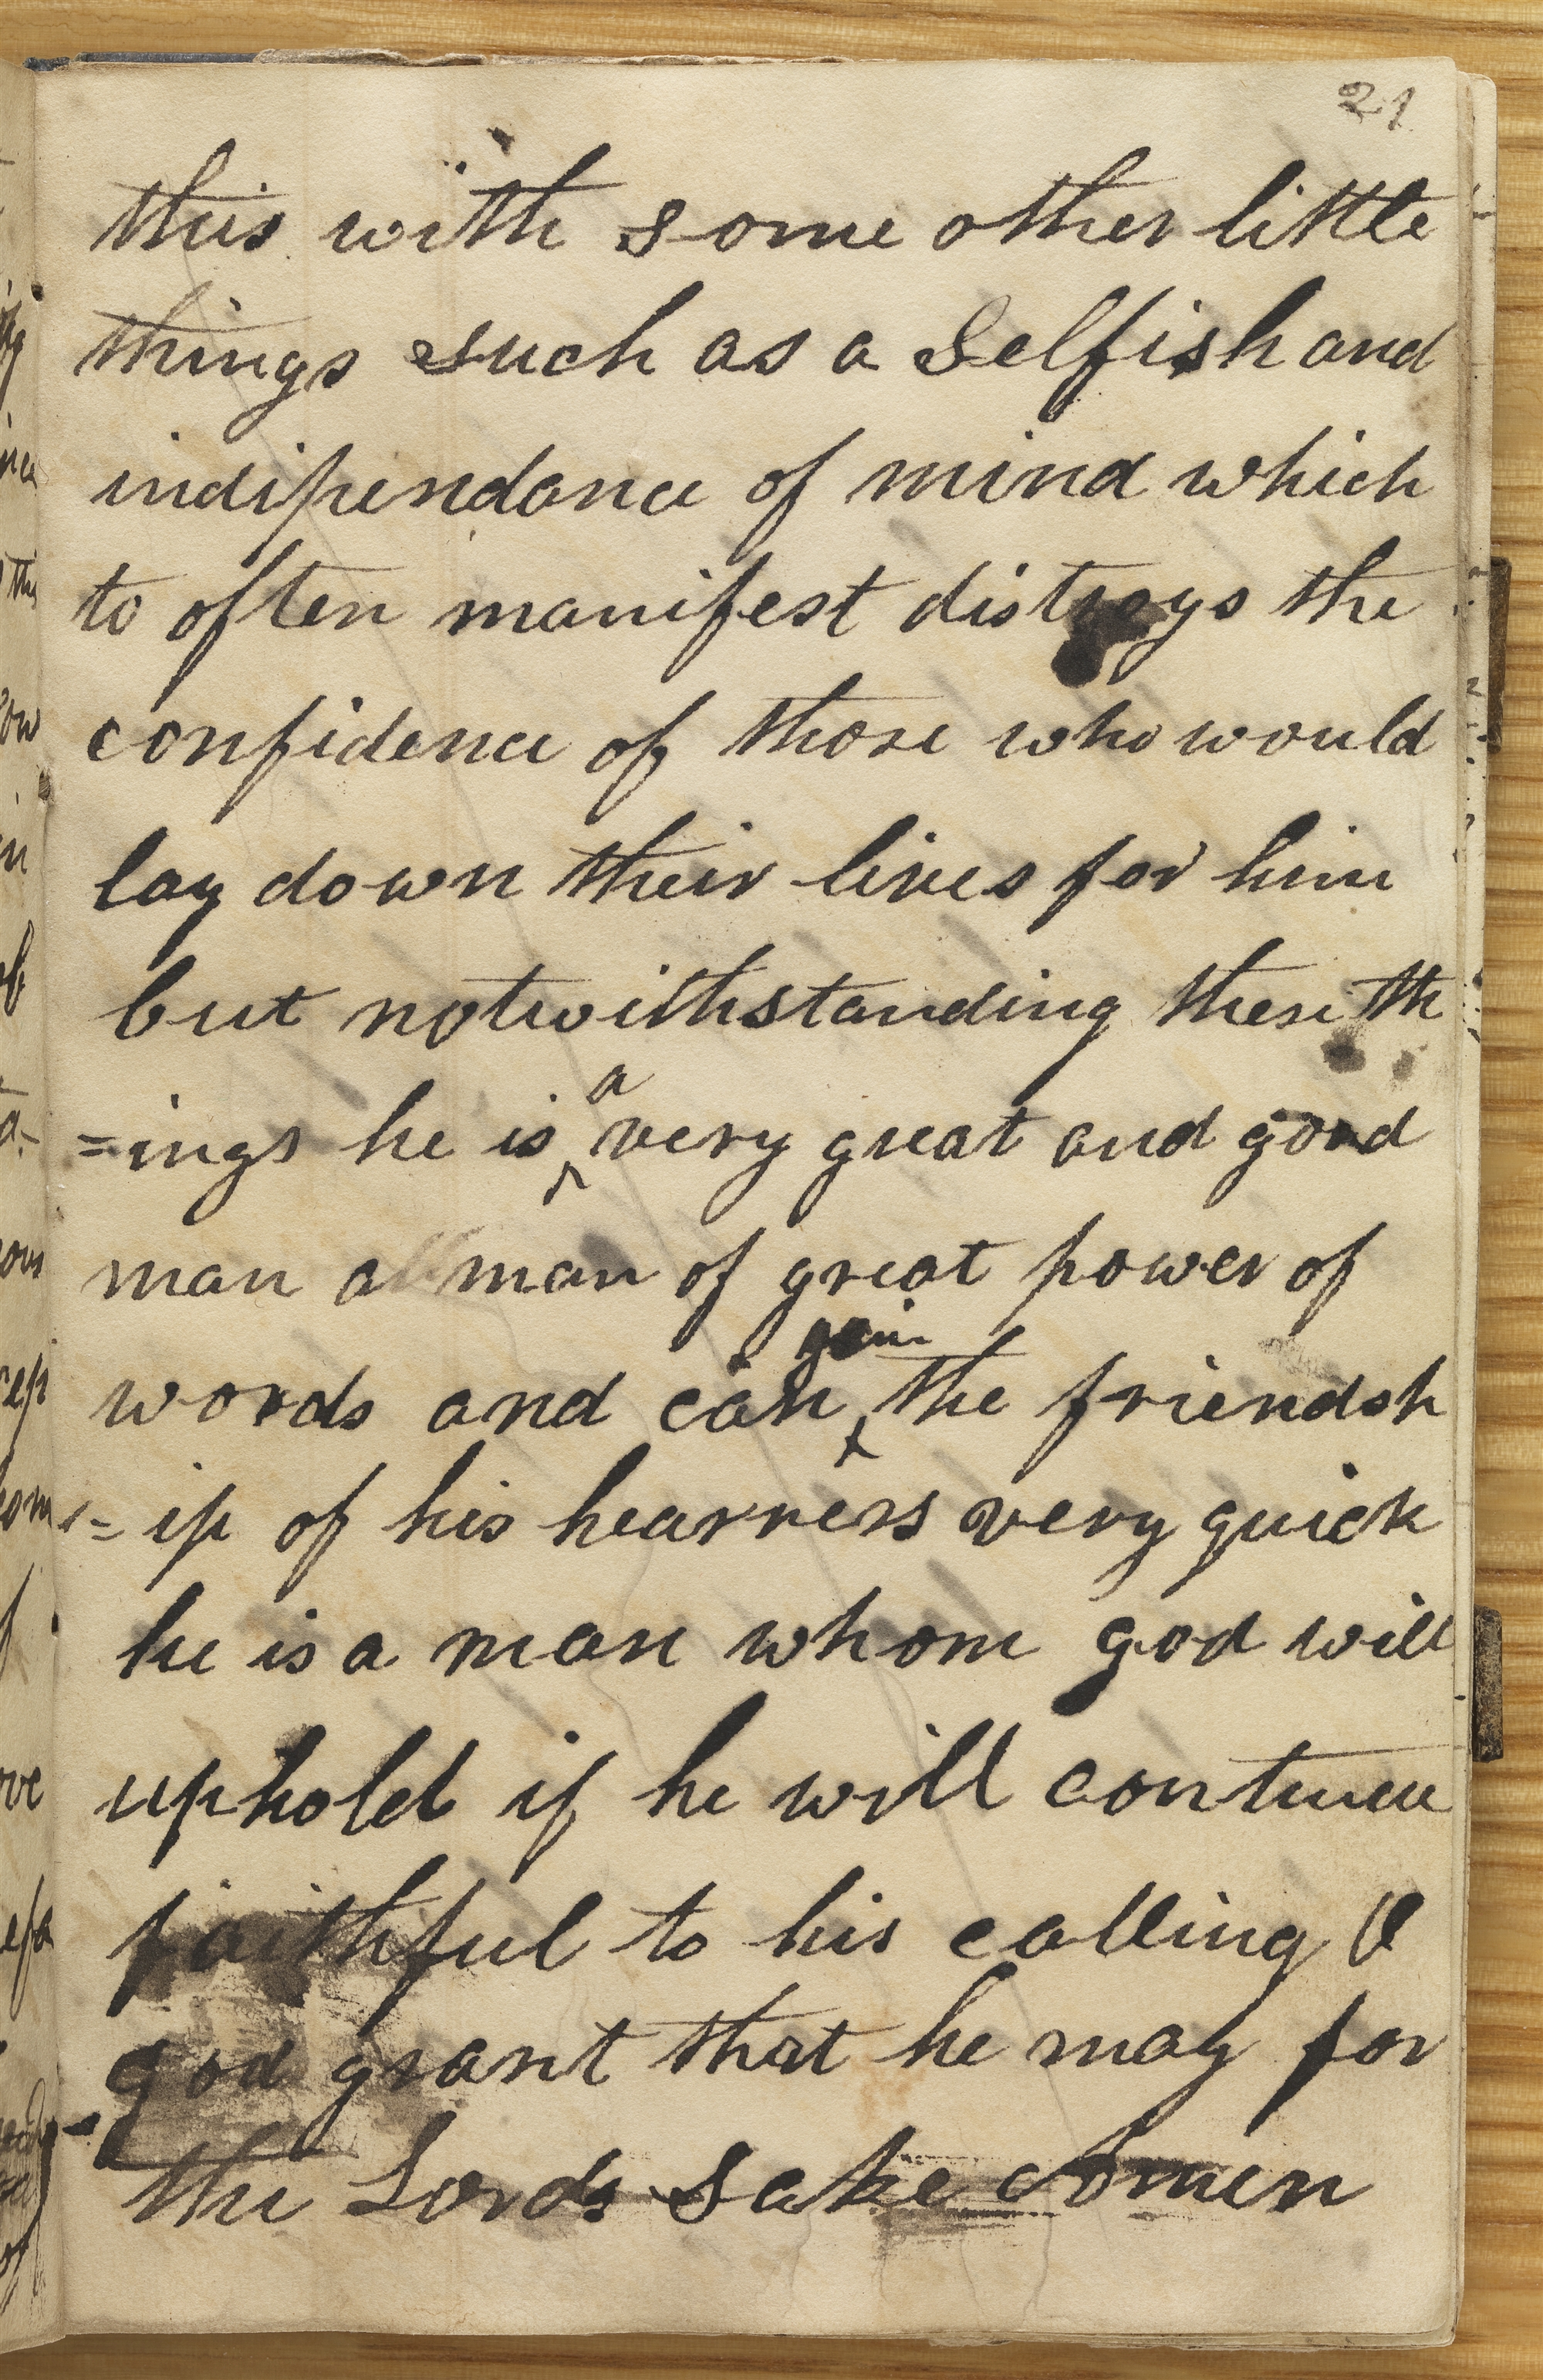 21
this with some other little
things such as a Selfish and
indipendance of mind which
to often manifest distroys the
confidence of those who would
lay down their lives for him
but notwithstanding these th
=ings he is a very great and good
man a man of great power of
words and can gain the friendsh
=ip of his hearrers very quick
he is a man whom god will
uphold if he will continue
faithful to his calling O
god grant that he may for
the Lords sake Amen